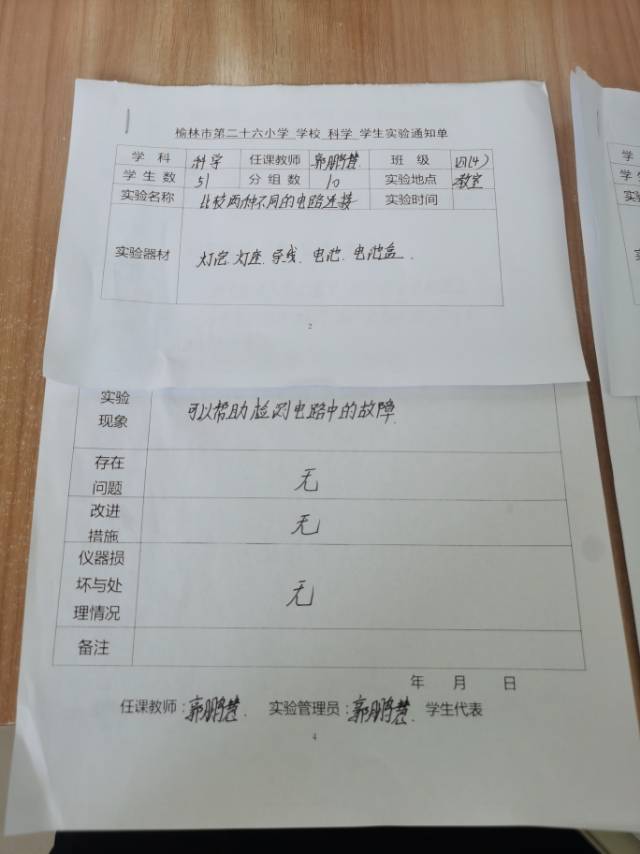 榆林市第二十六小学 学校 科学 学生实验通知单
学 科 科学 任课教师 郭鹏慧 班 级 四(4)
学生数 51 分组数 10 实验地点 教室
实验名称 比较两种不同的电路连接 实验时间
实验器材 灯泡、灯座、导线、电池、电池盒.
2
实验
现象 可以帮助检测电路中的故障.
存在
问题 无
改进
措施 无
仪器损
坏与处 无
理情况
备注
年 月 日
任课教师:郭鹏慧. 实验管理员:郭鹏慧. 学生代表
4
学
学生
实验